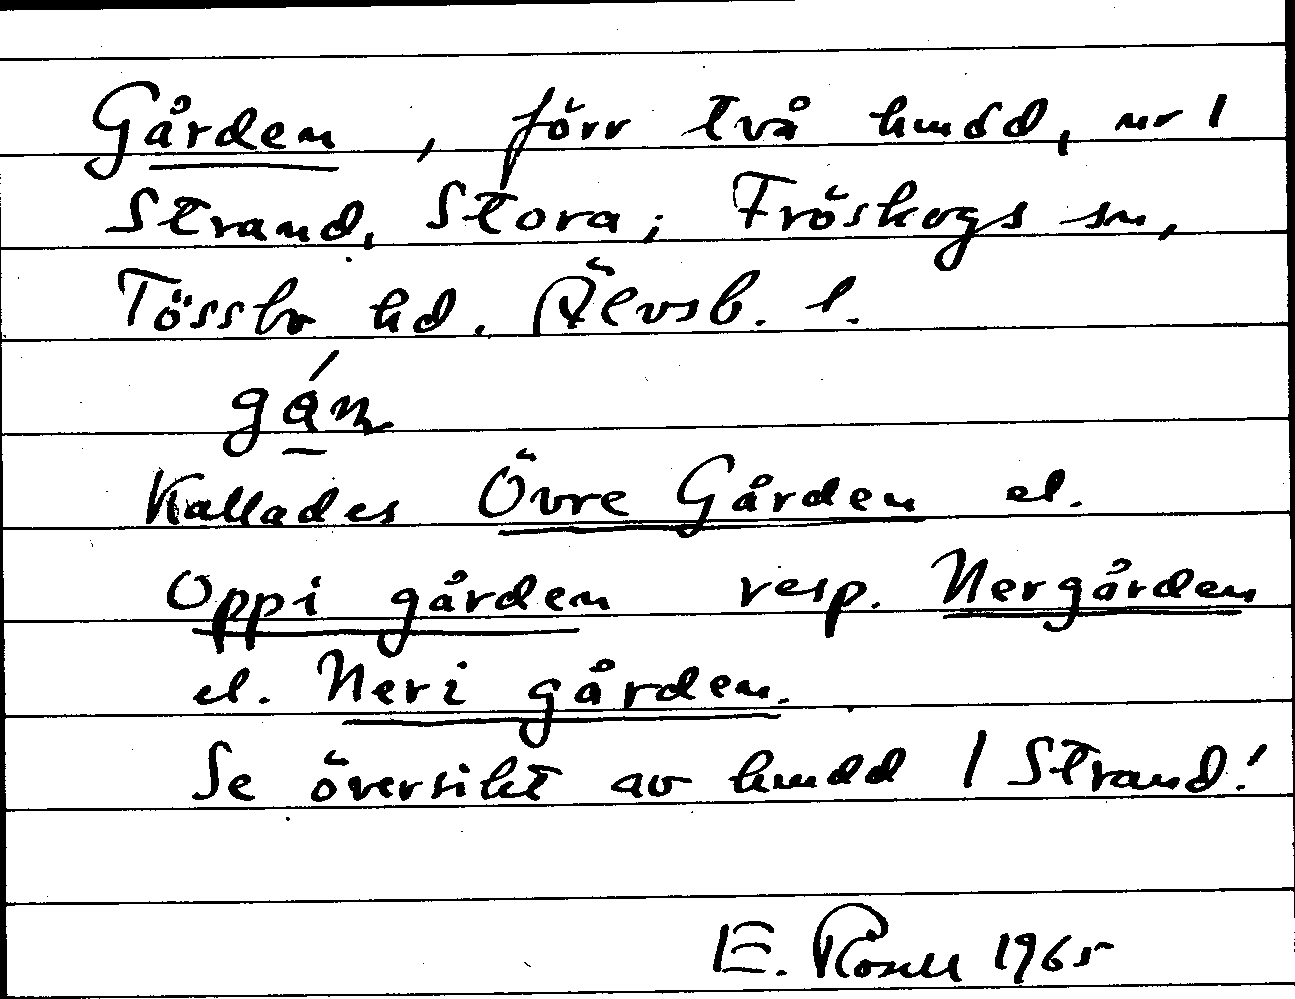 Gården, förr två hmdd, nr 1
Strand, Stora; Fröskogs sn,
Tössbo hd. Älvsb. l.
gán
Kallades Övre Gården el.
Oppi gården resp. Nergården
el. Neri gården.
Se översikt av hmdd 1 Strand!
E. Rosell 1965